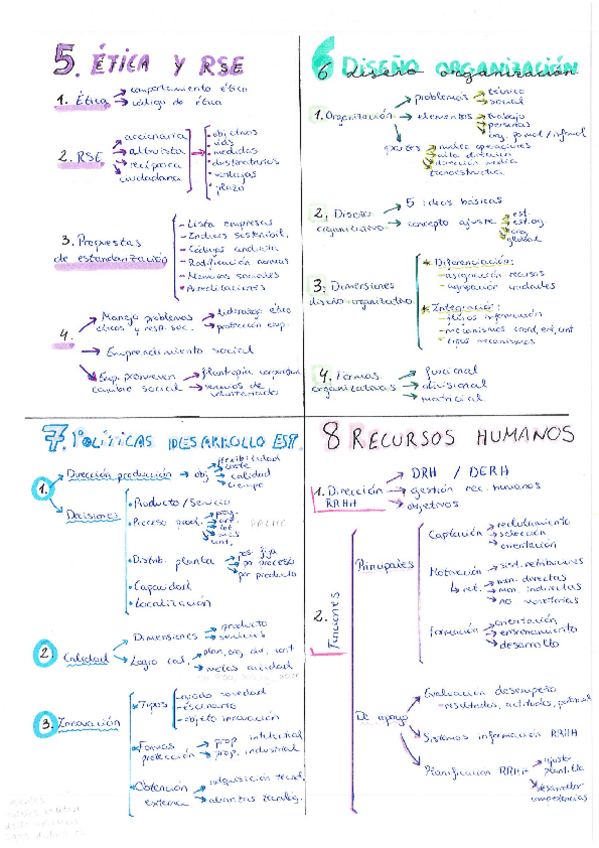 5. ÉTICA Y RSE
1. Ética
comportamiento ético
código de ética
2. RSE
accionaria
altruista
recíproca
ciudadana
objetivos
medidas
ventajas
plazo
3. Propuestas
de estandarización
Lista empresas
Índices sostenibil.
Códigos conducta
Memorias sociales
Acreditaciones
4.
Manejo problemas
éticos y resp. soc.
liderazgo ético
protección emp.
Emprendimiento social
Emp. promueven
cambio social
filantropía corporativa
servicios de
voluntariado
6 DISEÑO ORGANIZACIÓN
6 diseño organización
1. Organización
problemas
técnico
social
elementos
trabajo
personas
org. formal / informal
partes
núcleo operaciones
alta dirección
dirección media
tecnoestructura
2. Diseño
organizativo
5 ideas básicas
concepto ajuste
est.
est.org.
org.
global
3. Dimensiones
diseño organizativo
* Diferenciación:
- asignación recursos
- agrupación unidades
* Integración:
- flujos información
- mecanismos coord, ent, cont
- tipos mecanismos
4. Formas
organizativas
funcional
divisional
matricial
7. POLÍTICAS DESARROLLO EST.
1.
Dirección producción
obj
flexibilidad
coste
calidad
tiempo
Decisiones
Producto/Servicio
Proceso prod.
proy.
art.
lot.
mas.
cont.
Distrib. planta
pos. fija
por proceso
por producto
Capacidad
Localización
2. Calidad
Dimensiones
producto
servicios
Logro cal.
plan, org, dir, cont
metas calidad
3. Innovación
Tipos
grado novedad
escenario
objeto innovación
Formas
protección
prop. intelectual
prop. industrial
Obtención
externa
adquisición tecnol.
alianzas tecnológ.
8 RECURSOS HUMANOS
1. Dirección
RRHH
DRH / DERH
gestión rec. humanos
objetivos
2. Funciones
Principales
Captación
reclutamiento
selección
orientación
Motivación
sist. retributivos
ret.
mon. directas
mon. indirectas
no monetarias
Formación
orientación
entrenamiento
desarrollo
De apoyo
Evaluación desempeño
- resultados, actitudes, potencial
Sistemas información RRHH
Planificación RRHH
ajustar
plantilla
desarrollar
competencias